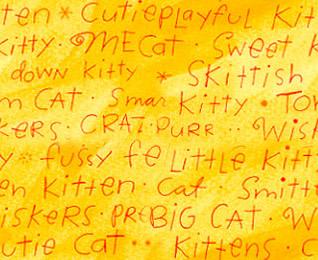 ten * Cutie Playful Kit
Kitty · MECat Sweet K
down Kitty * Skittish
m CAT · Smar Kitty · TO
kers · CRAT PURR ·· Wisk
y * fussy fe Little Kitt
en Kitten · Cat · Smitt
iskers · PR BIG CAT · W
utie Cat ·· Kittens · C